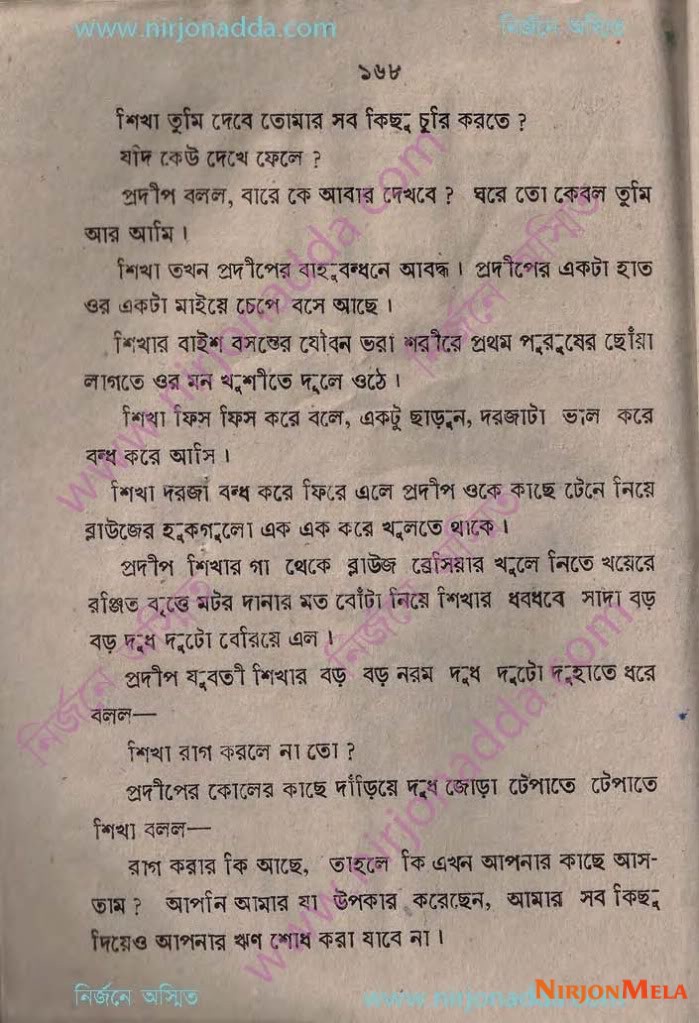 www.nirjonadda.com নির্জনে অস্মিত
১৬৮
শিখা তুমি দেবে তোমার সব কিছু চুরি করতে ?
যদি কেউ দেখে ফেলে ?
প্রদীপ বলল, বারে কে আবার দেখবে ? ঘরে তো কেবল তুমি
আর আমি ।
শিখা তখন প্রদীপের বাহুবন্ধনে আবদ্ধ । প্রদীপের একটা হাত
ওর একটা মাইয়ে চেপে বসে আছে ।
শিখার বাইশ বসন্তের যৌবন ভরা শরীরে প্রথম পুরুষের ছোঁয়া
লাগতে ওর মন খুশীতে দুলে ওঠে ।
শিখা ফিস ফিস করে বলে, একটু ছাড়ুন, দরজাটা ভাল করে
বন্ধ করে আসি ।
শিখা দরজা বন্ধ করে ফিরে এলে প্রদীপ ওকে কাছে টেনে নিয়ে
ব্লাউজের হুকগুলো এক এক করে খুলতে থাকে ।
প্রদীপ শিখার গা থেকে ব্লাউজ ব্রেসিয়ার খুলে নিতে খয়েরে
রঞ্জিত বৃত্তে মটর দানার মত বোঁটা নিয়ে শিখার ধবধবে সাদা বড়
বড় দুধ দুটো বেরিয়ে এল ।
প্রদীপ যুবতী শিখার বড় বড় নরম দুধ দুটো দুহাতে ধরে
বলল—
শিখা রাগ করলে না তো ?
প্রদীপের কোলের কাছে দাঁড়িয়ে দুধ জোড়া টেপাতে টেপাতে
শিখা বলল—
রাগ করার কি আছে, তাহলে কি এখন আপনার কাছে আস-
তাম ? আপনি আমার যা উপকার করেছেন, আমার সব কিছু
দিয়েও আপনার ঋণ শোধ করা যাবে না ।
www.nirjonadda.com
নির্জনে অস্মিত
নির্জনে অস্মিত www.nirjonadda.com NIRJONMELA